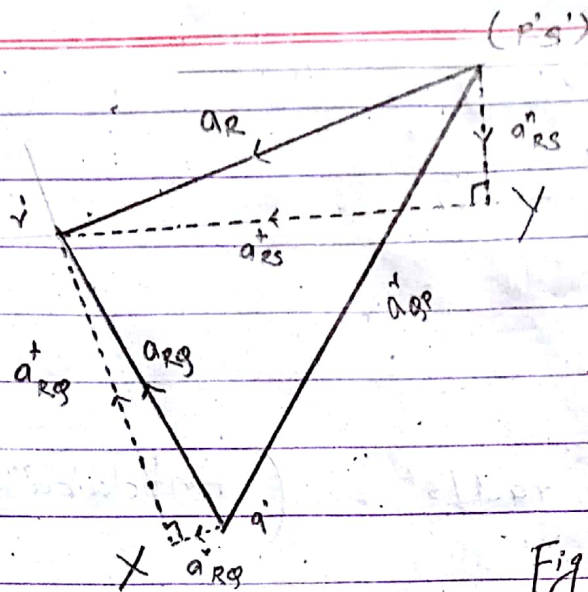 (p's')
aR
aⁿRS
r'
Y
aᵗRS
aQP
aᵗRQ
aRQ
q'
X
aRQ
Fig